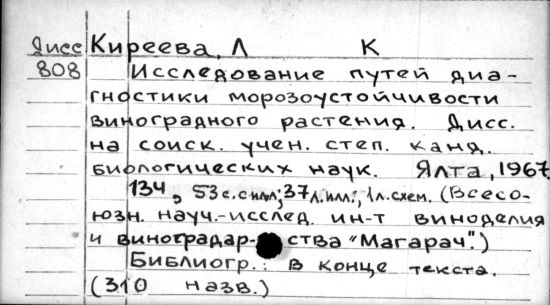 Дисс 808
Киреева, Л К
Исследование путей диа-
гностики морозоустойчивости
виноградного растения. Дисс.
на соиск. учен. степ. канд.
биологических наук. Ялта, 1967
134, 53 с. с илл; 37 л. илл.; 1 л. схем. (Всесо-
юзн. науч.-исслед. ин-т виноделия
и виноградар- ства "Магарач".)
Библиогр.: в конце текста.
(310 назв.)